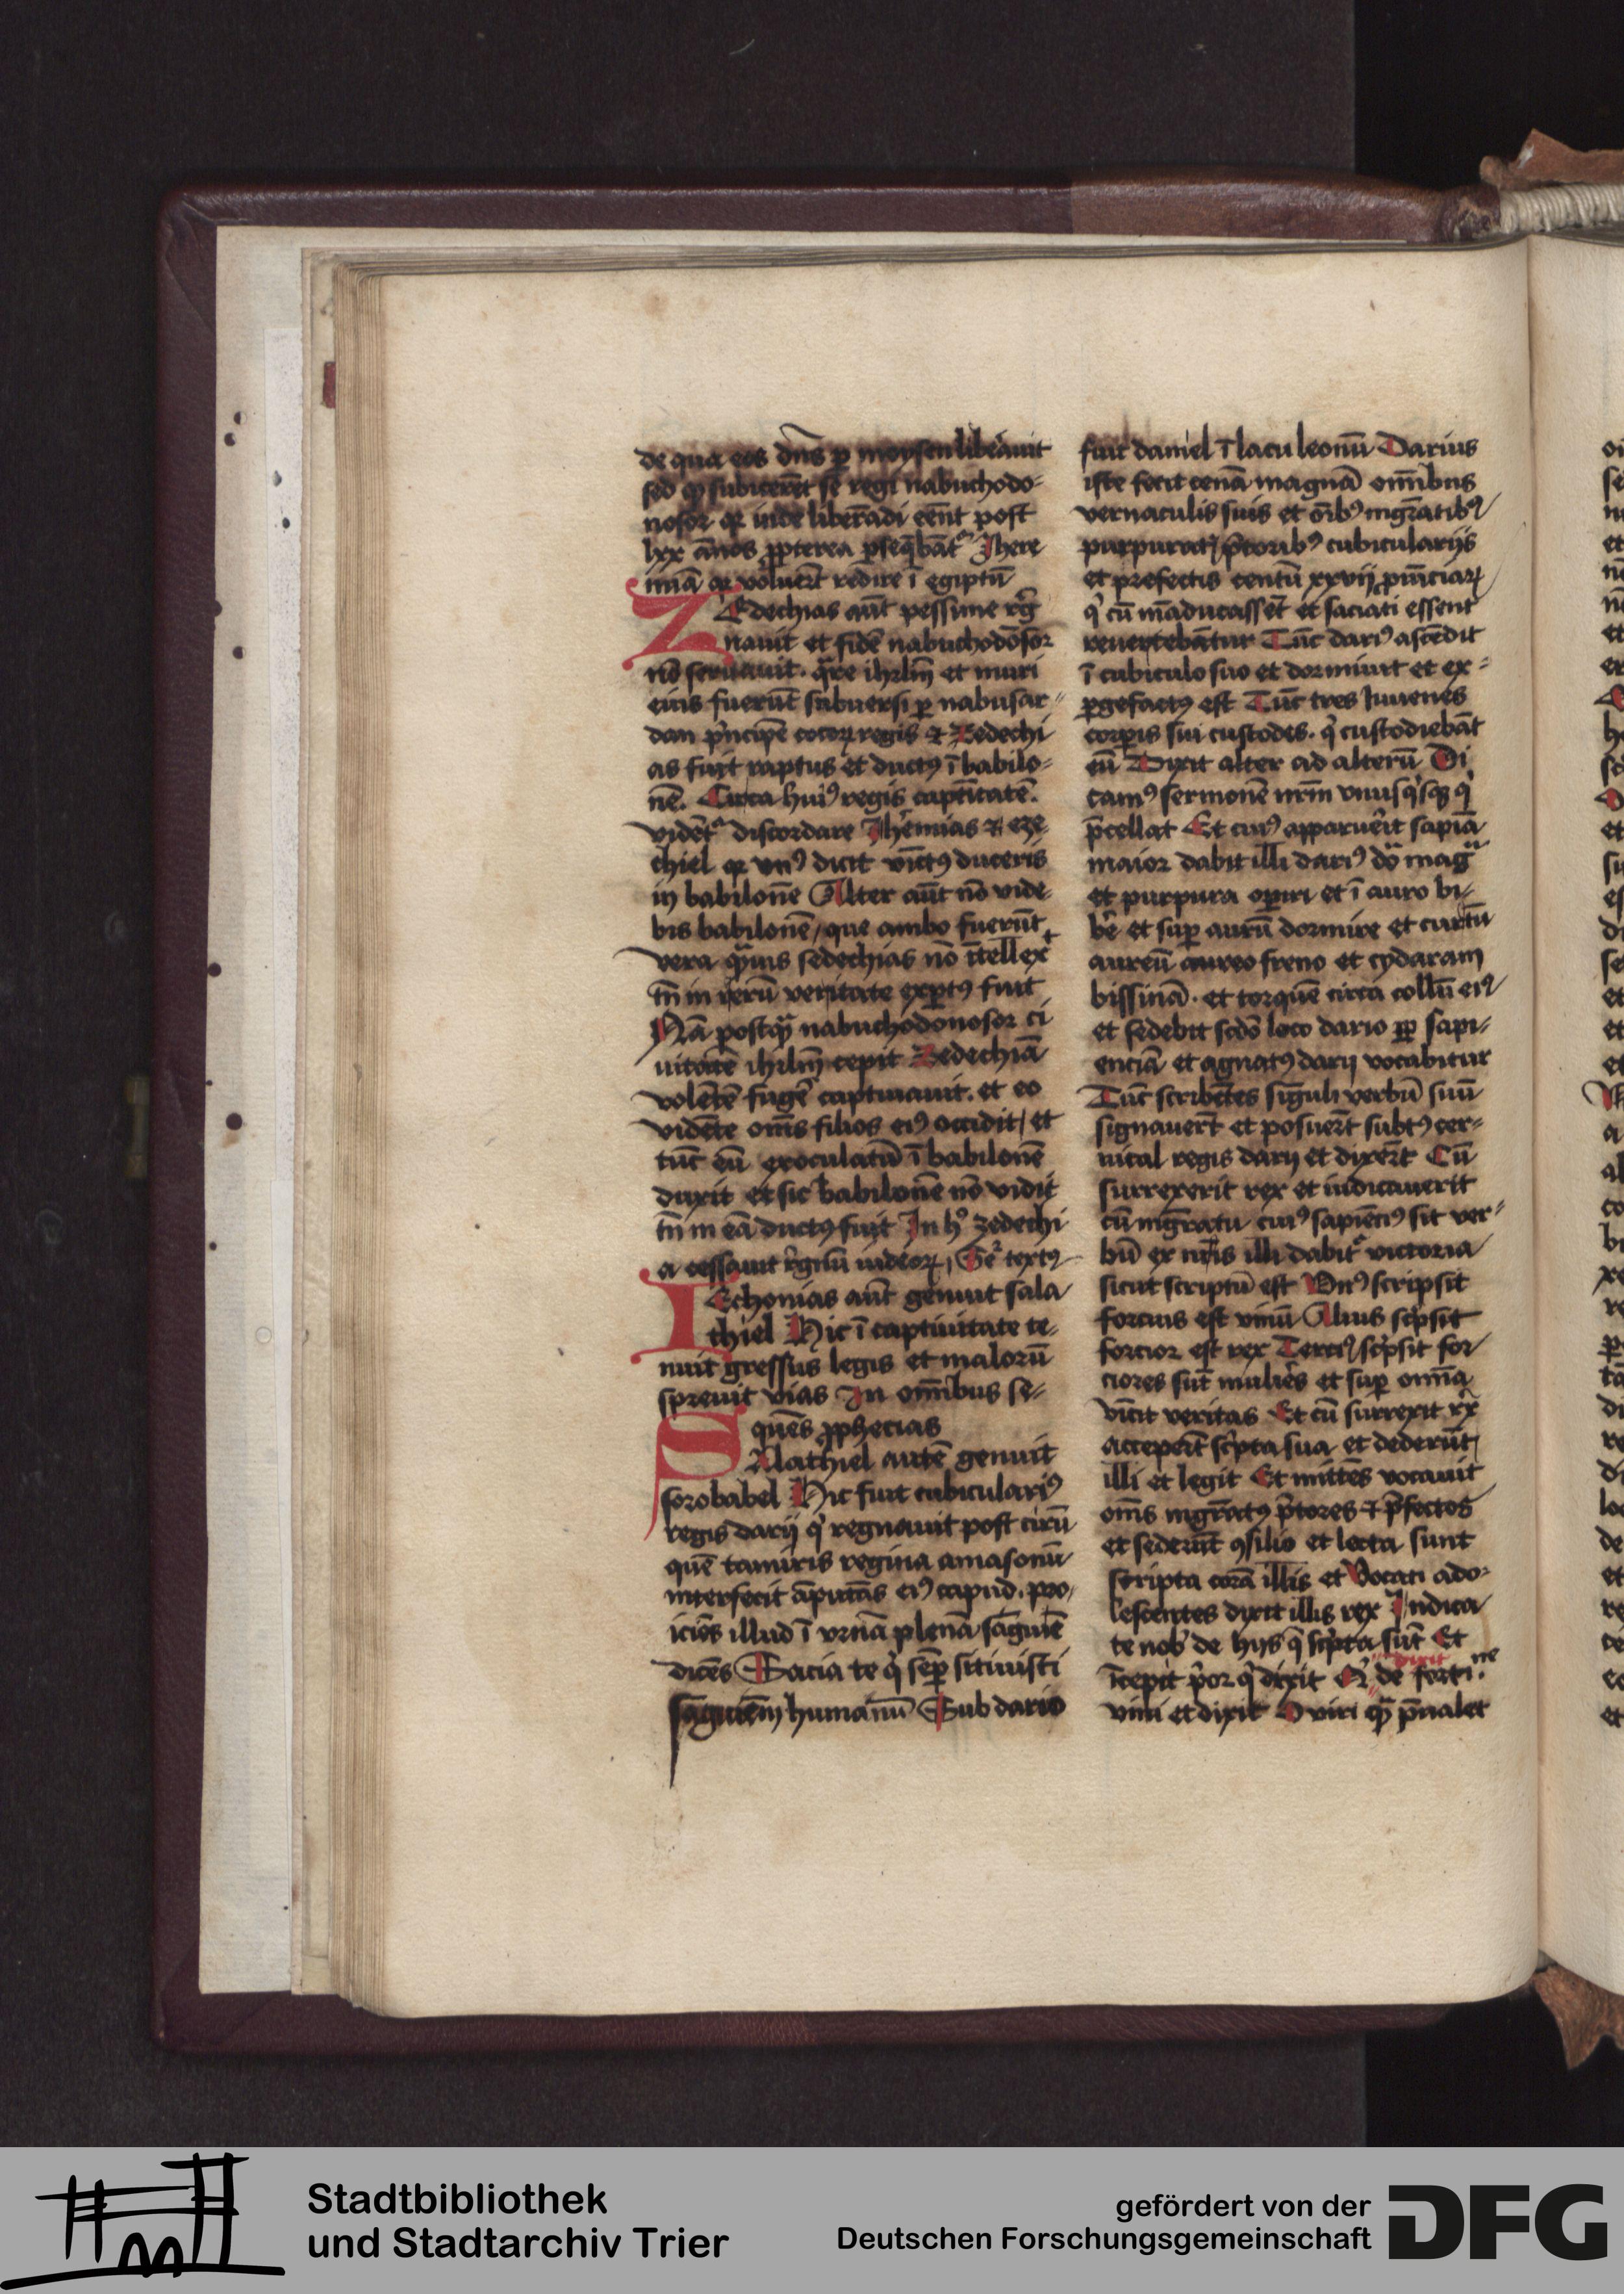 de qua eos dn̄s ꝑ moysen libeāuit
sed qꝫ subicerēt se regi nabuchodo-
nosor qꝛ inde liberādi eēnt post
lxx ānos ꝓpterea ꝑseq̄bātᷣ Jhere
miā qꝛ voluert̄ redire ī egiptū
ZEdechias aūt pessime rēg
nauit et fidē nabuchodōsor
nō seruauit. q̄re ihrlm̄ et muri
eius fuerūt subuersi ꝑ nabusar-
dan pͥncipē cocoꝝ regis ⁊ Zedechi
as fuit raptus et ductꝰ ī babilo-
nē. Circa huiꝰ regis captiītatē.
vidētᷣ discordare Jhēmias ⁊ eze
chiel qꝛ vnꝰ dicit victꝰ duceris
in babilonē Alter aūt nō vide-
bis babilonē, que ambo fuerūt
vera q̄uis sedechias nō ītellex͛t
tn̄ in rerū veritate exꝑtꝰ fuit
Nā postqᷓ nabuchodonosor ci
uitatē ihrlm̄ cepit Zedechiā
volētē fuge͛ captiuauit. et eo
vidēte om̄s filios eiꝰ occidit, et
tūc eū exoculatū ī babilonē
duxit et sic babilonē nō vidit
tn̄ in eā ductꝰ fuit Jn hͦ zedechi
a cessauit rēgnū iudeoꝝ, Seᷣ textꝰ
IEchonias aūt genuit sala
thiel Hic ī captiuitate te-
nuit gressus legis et malorū
spreuit vias In om̄ibus se-
quēs ꝓphecias
SAlathiel autē genuit
sorobabel Hic fuit cubiculariꝰ
regis darij qͥ regnauit post cirū
quē tamiris regina amasonū
interfecit āputās eiꝰ capud. pro,
iciēs illud ī vrnā plenā sāguīe
dicēs Sacia te qͥ sēꝑ sitiuisti
sāguiēm humanū Sub dario
fuit daniel ī lacu leonū Darius
iste fecit cenā magnā om̄ibus
vernaculis suis et oībꝰ mgr̄atibꝰ
purpurat, p̄toribꝰ cubicularijs
et prefectis centū xxvij ꝓuīciaꝝ
qͥ cū māducassēt et saciati essent
reuertebātur Tūc dariꝰ ascēdit
ī cubiculo suo et dormiuit et ex-
ꝑgefactꝰ est Tūc tres Juuenes
corꝑis sui custodes. qͥ custodiebāt
eū Dixit alter ad alterū Di
camꝰ sermonē nr̄m vnusqͥsqꝫ qͥ
p̄cellat Et cuiꝰ apparuēit sapiā
maior dabit illi dariꝰ dōᷓ magᷓ
et purpura oꝑiri et ī auro bi-
be͛ et suꝑ aurū dormire et currū
aureū aureo freno et cydaram
bissinā. et torquē circa collū eiꝰ
et sedebit scdō loco dario ꝓꝑ sapi-
enciā et agnatꝰ darij vocabitur
Tūc scribētes sīguli verbū suū
signauert̄ et posuert̄ subtꝰ cer-
uical regis darij et dixert̄ Cū
surrexerit rex et iudicauerit
cū mgr̄atu cuiꝰ sapiēciꝰ sit ver-
bū ex nr̄is illi dabitᷣ victoria
sicut scriptū est Vnꝰ scripsit
forcius est vinū Alius scͥpsit
forcior est rex Terciꝰ scͥpsit for
ciores sūt muliēs et suꝑ om̄ia
vīcit veritas Et cū surrexit rx̄
acceperūt scͥpta sua et dederūt
illi et legit Et mittēs vocauit
om̄s mgr̄atꝰ p̄tores ⁊ p̄fectos
et sederūt ꝯsilio et lecta sunt
scripta corā illis et Vocati ado-
lescentes dixit illis rex Indica
te nob̄ de hijs qᷓ scͥpta sūt Et
īcepit pͥor qͥ dixit de fortine
vini et dixit O viri qᷓ p̄ualet
Stadtbibliothek
und Stadtarchiv Trier
gefördert von der
Deutschen Forschungsgemeinschaft
DFG